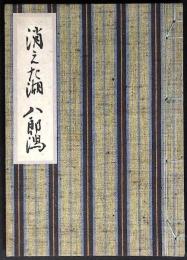 消えた湖 八郎潟